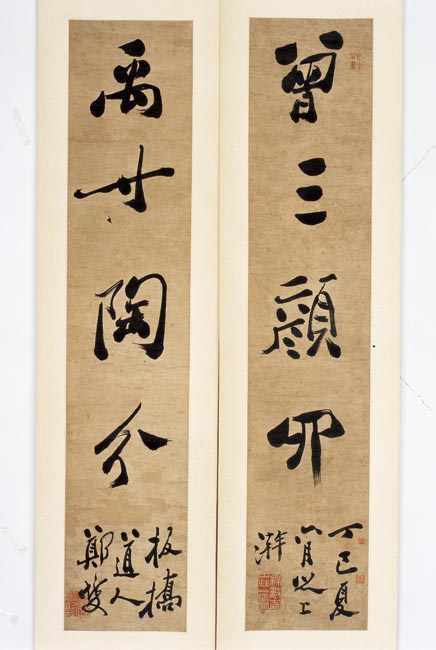 曾三顏四
丁巳夏
六月之上
澣
禹寸陶分
板橋
道人
鄭燮